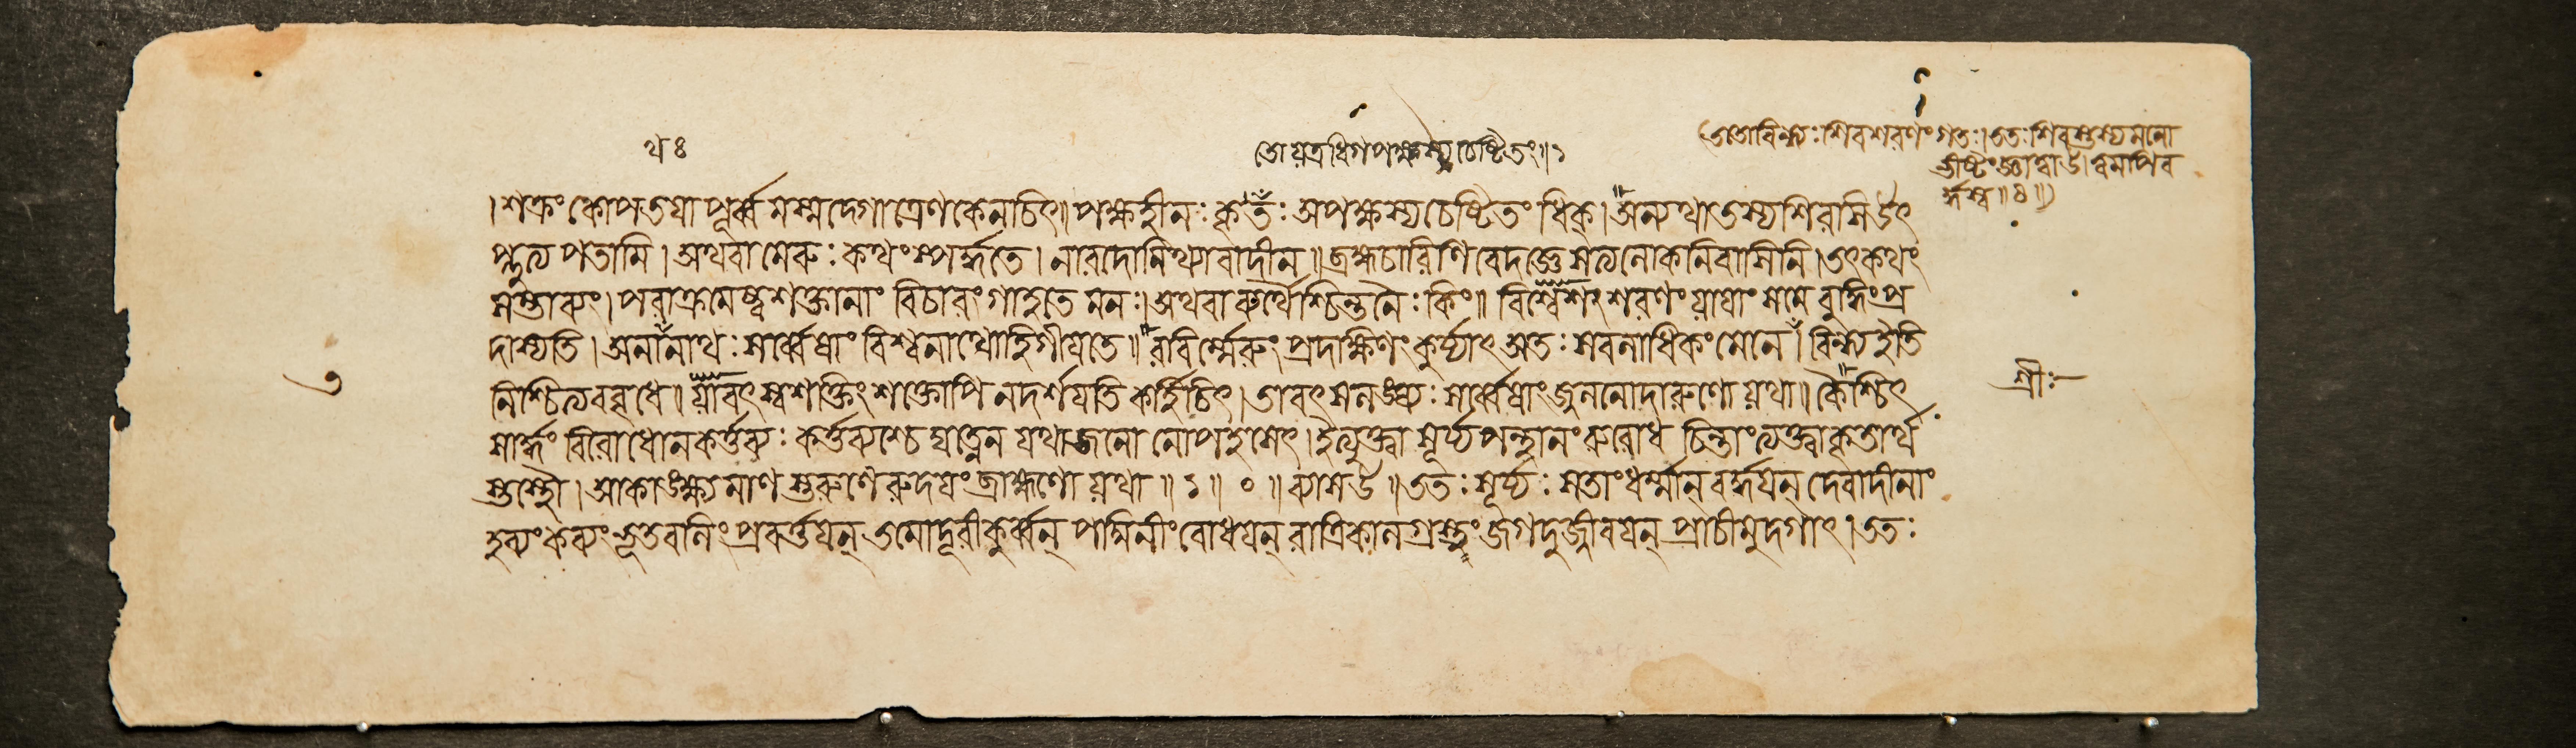 থ ৪
তো যত্র ধিগপক্ষস্য চেষ্টিতং॥১
(ততো বিন্ধ্যঃ শিবশরণং গতঃ।ততঃ শিবস্তস্য মনো
ভীষ্টং জ্ঞাত্বা উ।ত্বমপি ব
র্দ্ধস্ব॥৪॥)
।শক্রং কোপতয়া পূর্ব্ব মস্মদ্গোত্রেণ কেনচিৎ॥ পক্ষহীনঃ কৃতঃ অপক্ষস্য চেষ্টিতং ধিক্।অন্যথা তস্য শিরসি উৎ
প্লুত্য পতামি।অথবা মেরুঃ কথং স্পর্দ্ধতে। নারদো মিথ্যাবাদী ন॥ ব্রহ্মচারিণি বেদজ্ঞে সত্যলোকনিবাসিনি।তৎকথং
সম্ভাব্যং।পরাক্রমেষ্বশক্তানাং বিচারং গাহতে মনঃ।অথবা ব্যর্থৈশ্চিন্তনৈঃ কিং॥ বিশ্বেশং শরণং যায়াং স মে বুদ্ধিং প্র
দাস্যতি।অনাথনাথঃ সর্ব্বেষাং বিশ্বনাথো হি গীয়তে॥ রবির্ম্মেরুং প্রদক্ষিণং কুর্য্যাৎ অতঃ সবলাধিকং মেনে। বিন্ধ্য ইতি
নিশ্চিত্য ববৃধে॥ যাবৎ স্বশক্তিং শক্তোপি ন দর্শয়তি কর্হিচিৎ।তাবৎ স লঙ্ঘ্যঃ সর্ব্বেষাং জ্বলনো দারুগো যথা॥ কৈশ্চিৎ
শ্রীঃ
সার্দ্ধং বিরোধো ন কর্ত্তব্যঃ কর্ত্তব্যশ্চেদ্যত্নেন যথা জনো নোপহসেৎ।ইত্যুক্ত্বা সূর্য্যপন্থানং রুরোধ চিন্তাং ত্যক্ত্বা কৃতার্থ
স্তস্থৌ।আকাঙ্ক্ষমাণ স্তরণেরুদয়ং ব্রাহ্মণো যথা॥১॥০॥ব্যাস উ॥ততঃ সূর্য্যঃ সতাং ধর্ম্মান্ বর্দ্ধয়ন্ দেবাদীনাং
হব্যং কব্যং ভূতবলিং প্রবর্ত্তয়ন্ তমো দূরীকুর্ব্বন্ পদ্মিনীং বোধয়ন্ রাত্রিকালগ্রস্তং জগদুজ্জীবয়ন্ প্রাচীমুদগাৎ।ততঃ